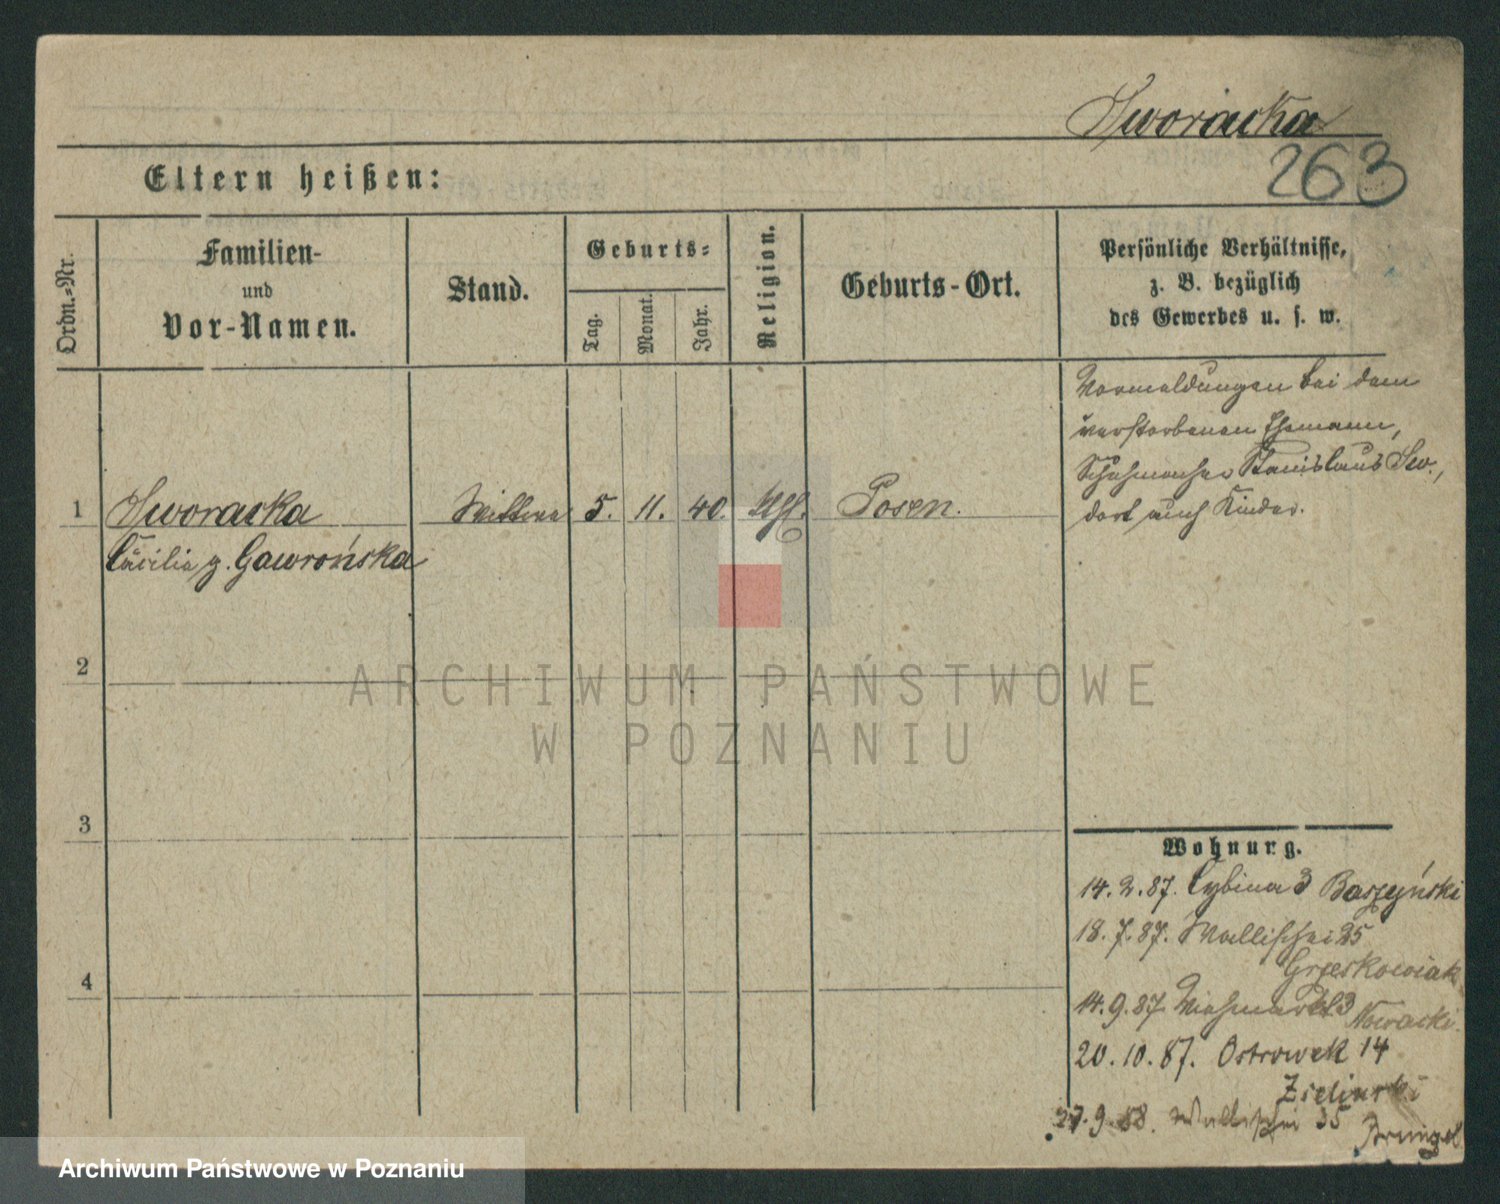 Sworacka
263
Eltern heißen:
Ordn.-Nr.
Familien-
und
Vor-Namen.
Stand.
Geburts-
Tag.
Monat.
Jahr.
Religion.
Geburts-Ort.
Persönliche Verhältnisse,
z. B. bezüglich
des Gewerbes u. s. w.
Vormeldungen bei dem
verstorbenen Ehemann,
Schuhmacher Stanislaus Sw.,
dort auch Kinder.
1 Sworacka Wittwe 5. 11. 40. kth. Posen.
Cäcilia g. Gawrońska
2
3
4
Wohnung.
14.2.87. Cybina 3 Baszyński
18.7.87. Wallischei 25
Grzeskowiak
14.9.87 Viehmarkt 3
Nowacki.
20.10.87. Ostrowek 14
Zielinski
27.9.88. Wallischei 35
ARCHIWUM PAŃSTWOWE
W POZNANIU
Archiwum Państwowe w Poznaniu